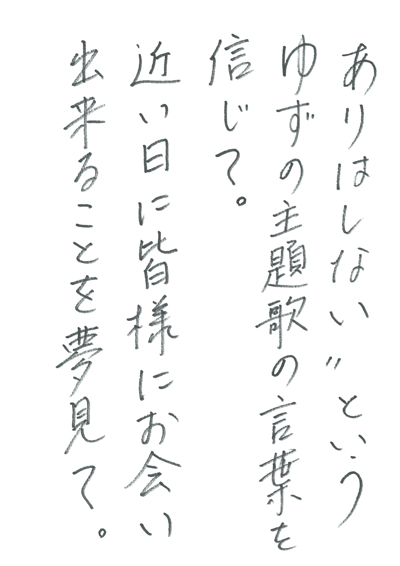 ありはしない〃という
ゆずの主題歌の言葉を
信じて。
近い日に皆様にお会い
出来ることを夢見て。